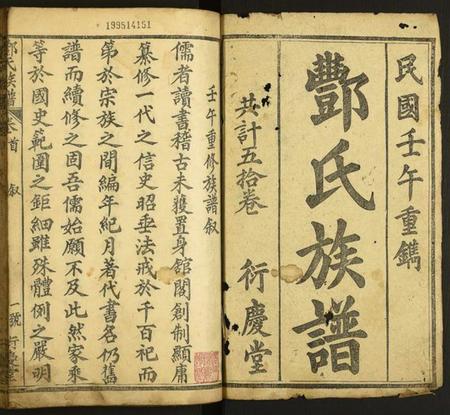 民國壬午重鐫
酆氏族譜
共計五拾卷
衍慶堂
壬午重修族譜叙
儒者讀書稽古未獲置身館閣創制顯庸
纂修一代之信史昭垂法戒於千百祀而
第於宗族之間編年紀月著代書名仍舊
譜而續修之固吾儒始願不及此然家乘
等於國史範圍之鉅細雖殊體例之嚴明
酆氏族譜
卷首 叙
一號
199514151